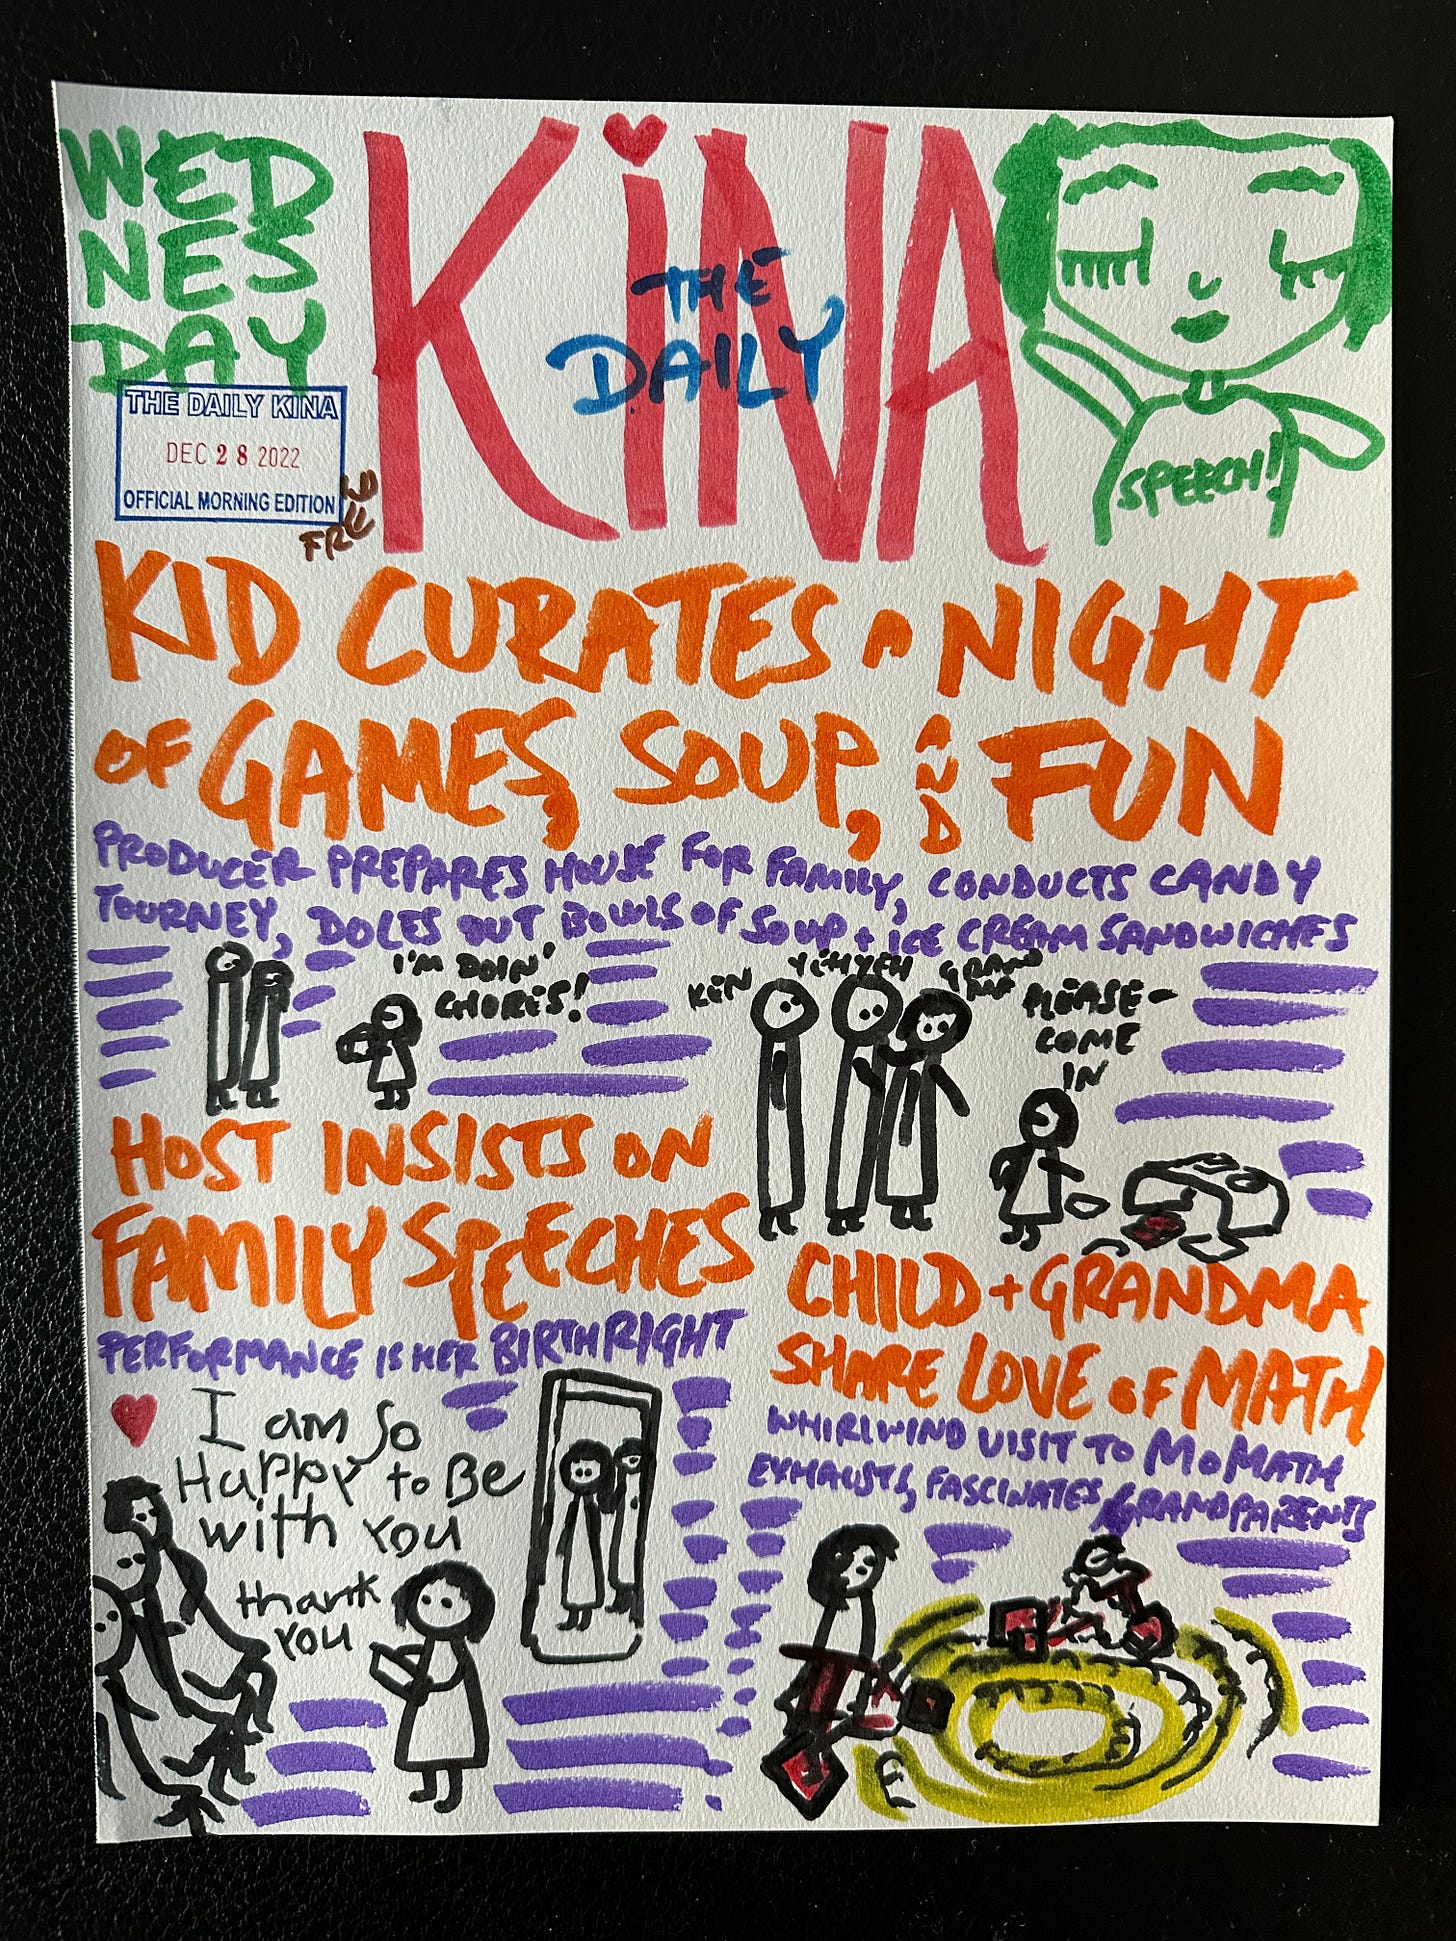 WED
NES
DAY
THE DAILY KINA
DEC 28 2022
OFFICIAL MORNING EDITION
KiNA
THE
DAILY
SPEECH!!
KID CURATES A NIGHT
OF GAMES, SOUP, AND FUN
PRODUCER PREPARES HOUSE FOR FAMILY, CONDUCTS CANDY
TOURNEY, DOLES OUT BOWLS OF SOUP + ICE CREAM SANDWICHES
I'M DOIN'
CHORES!
KEN
YEHYEH
PLEASE-
COME
IN
HOST INSISTS ON
FAMILY SPEECHES
PERFORMANCE IS HER BIRTHRIGHT
I am So
Happy to Be
with You
thank
You
CHILD + GRANDMA
SHARE LOVE OF MATH
WHIRLWIND VISIT TO MOMATH
EXHAUSTS, FASCINATES GRANDPARENTS